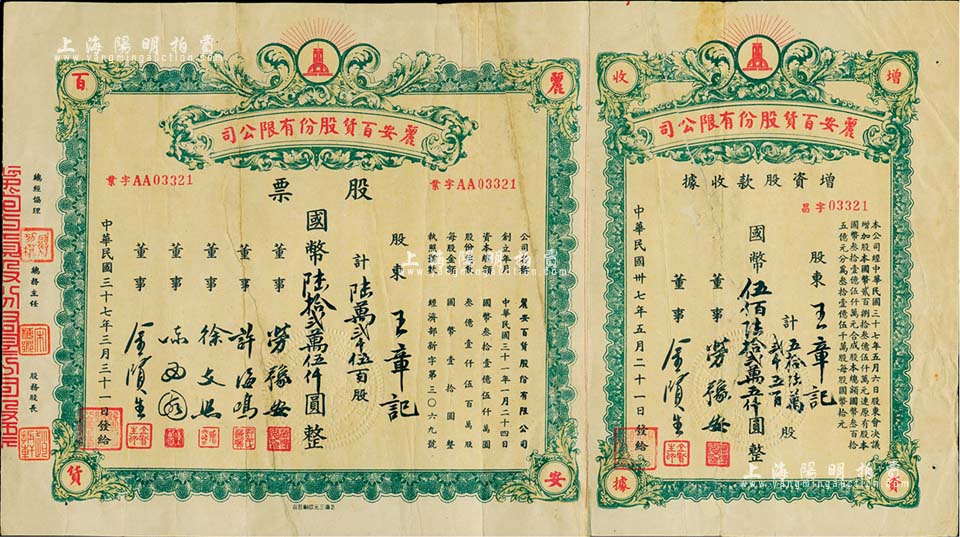 上海陽明拍賣
www.yangmingauction.com
麗安百貨
麗安百貨股份有限公司
業字AA03321
業字AA03321
股票
公司名稱 麗安百貨股份有限公司
創立年月 中華民國三十一年一月二十四日
資本總額 國幣叁拾壹億伍仟萬圓
股份總數 叁億壹仟伍百萬股
每股金額 國幣壹拾圓整
執照號數 經濟部新字第三〇六九號
股東 王章記
計 陸萬貳千伍百 股
國幣 陸拾貳萬伍仟圓 整
董事 勞豫安
董事 許海鳴
董事 徐文照
董事
董事 金賢生
中華民國三十七年三月三十一日發給
總經協理
總務主任
股務股長
增資收據
麗安百貨股份有限公司
增資股款收據
昌字03321
本公司經中華民國三十七年五月六日股東會決議
增加股本國幣貳百捌拾叁億伍仟萬元連原有股本
國幣叁拾壹億伍仟萬元合成股本總額國幣叁百拾
五億元分為叁拾壹億伍千萬股每股國幣拾元
股東 王章記
計 五拾陸萬貳千五百 股
國幣 伍佰陸拾貳萬五仟圓 整
董事 勞豫安
董事 金賢生
中華民國卅七年五月二十一日發給
上海陽明拍賣
www.yangmingauction.com